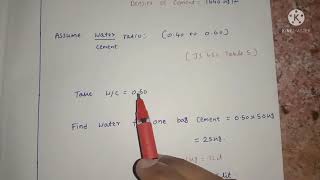 Density of Cement = 1440 kg/m
Assume Water/Cement ratio: (0.40 to 0.60)
[IS 456 Table 5]
Take W/C = 0.50
Find Water one bag Cement = 0.50 x 50 kg
= 25 kg
KINEMASTER